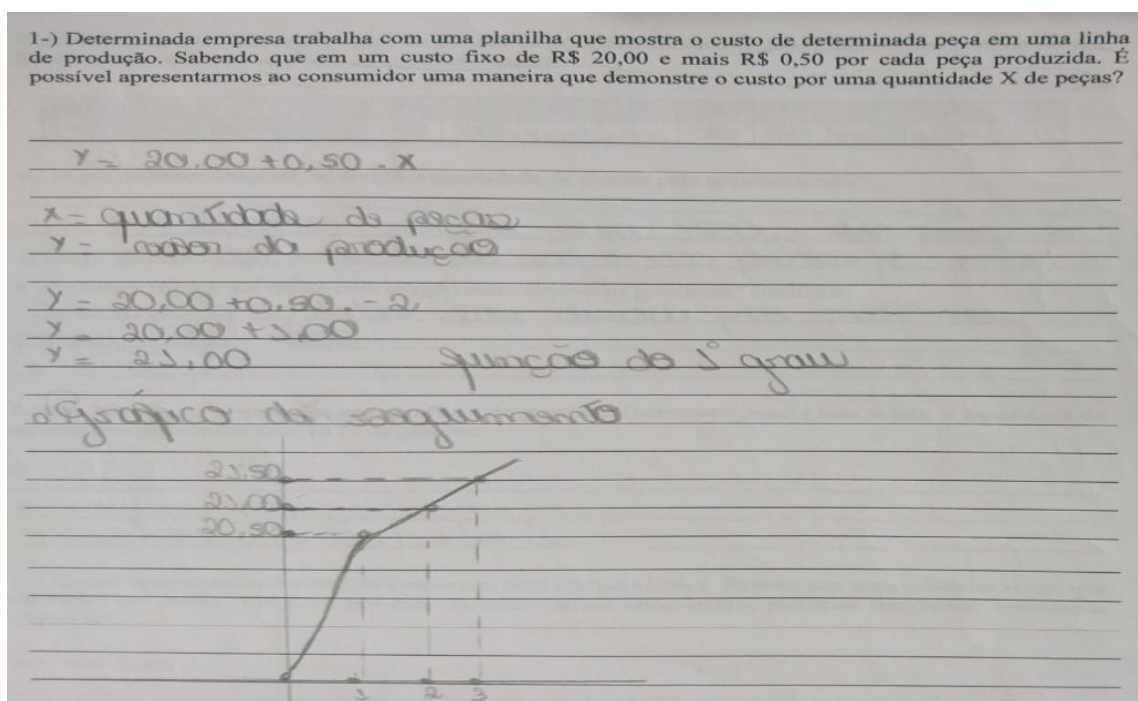 1-) Determinada empresa trabalha com uma planilha que mostra o custo de determinada peça em uma linha
de produção. Sabendo que em um custo fixo de R$ 20,00 e mais R$ 0,50 por cada peça produzida. É
possível apresentarmos ao consumidor uma maneira que demonstre o custo por uma quantidade X de peças?
Y = 20,00 + 0,50 . X
X = quantidade de peças
Y = da produção
Y = 20,00 + 0,50 . - 2
Y = 20,00 + 1,00
Y = 21,00 função do 1° grau
Gráfico do
21,50
21,00
20,50
1 2 3